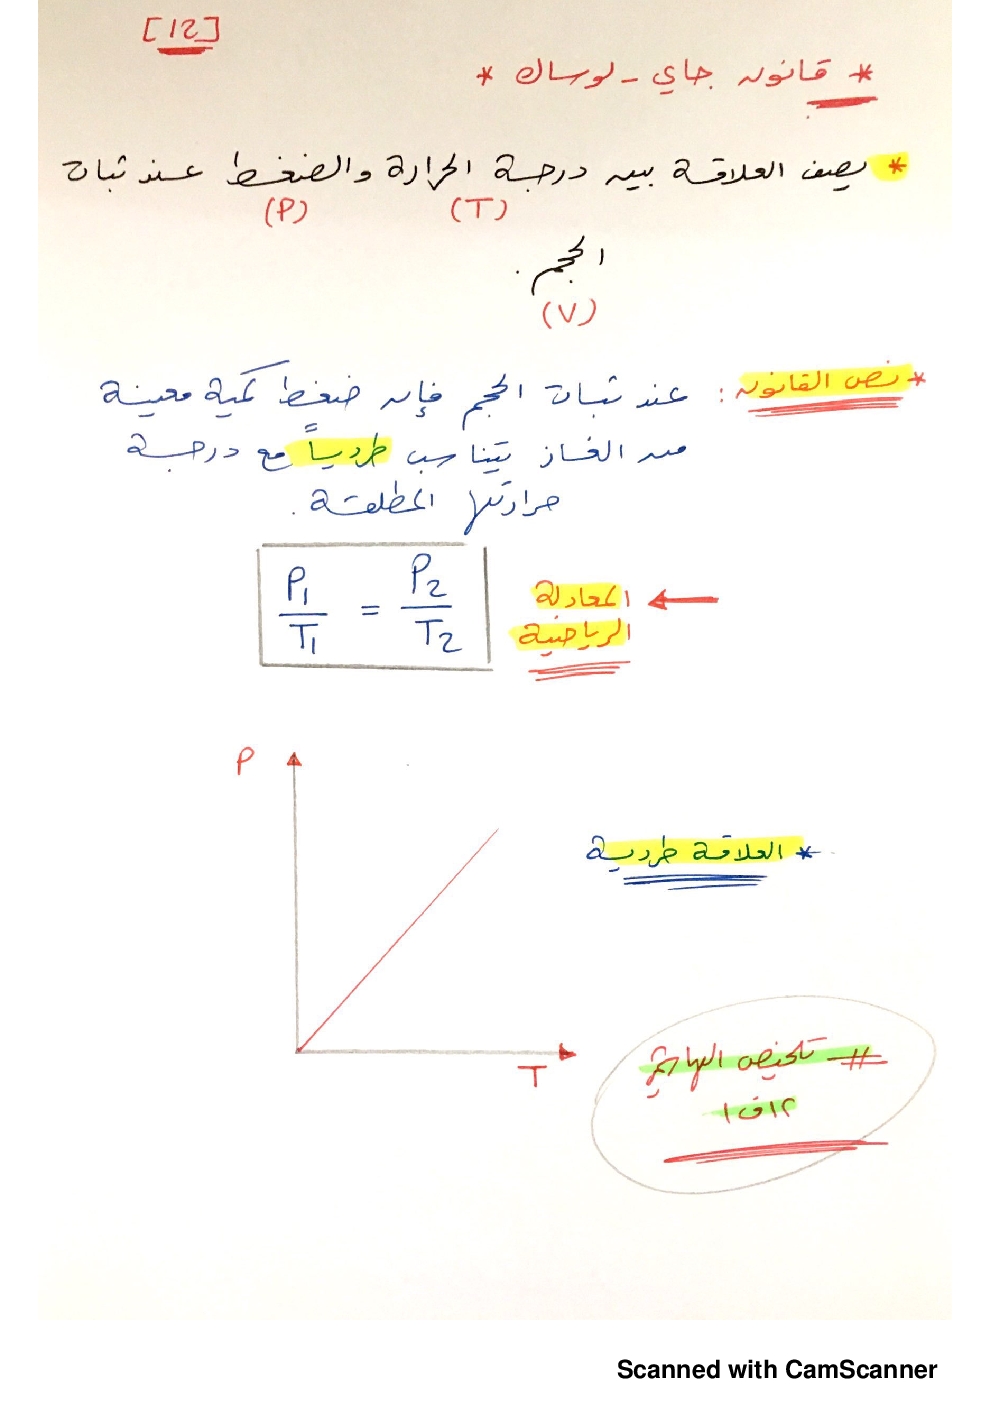 [12]
* قانون جاي - لوساك *
* يصف العلاقة بين درجة الحرارة والضغط عند ثبات
(T) (P)
الحجم .
(V)
* نص القانون : عند ثبات الحجم فإن ضغط كمية معينة
من الغاز يتناسب طردياً مع درجة
حرارتها المطلقة .
P1/T1 = P2/T2
المعادلة
الرياضية
P
* العلاقة طردية
T
# تلخيص
١٢ف١
Scanned with CamScanner